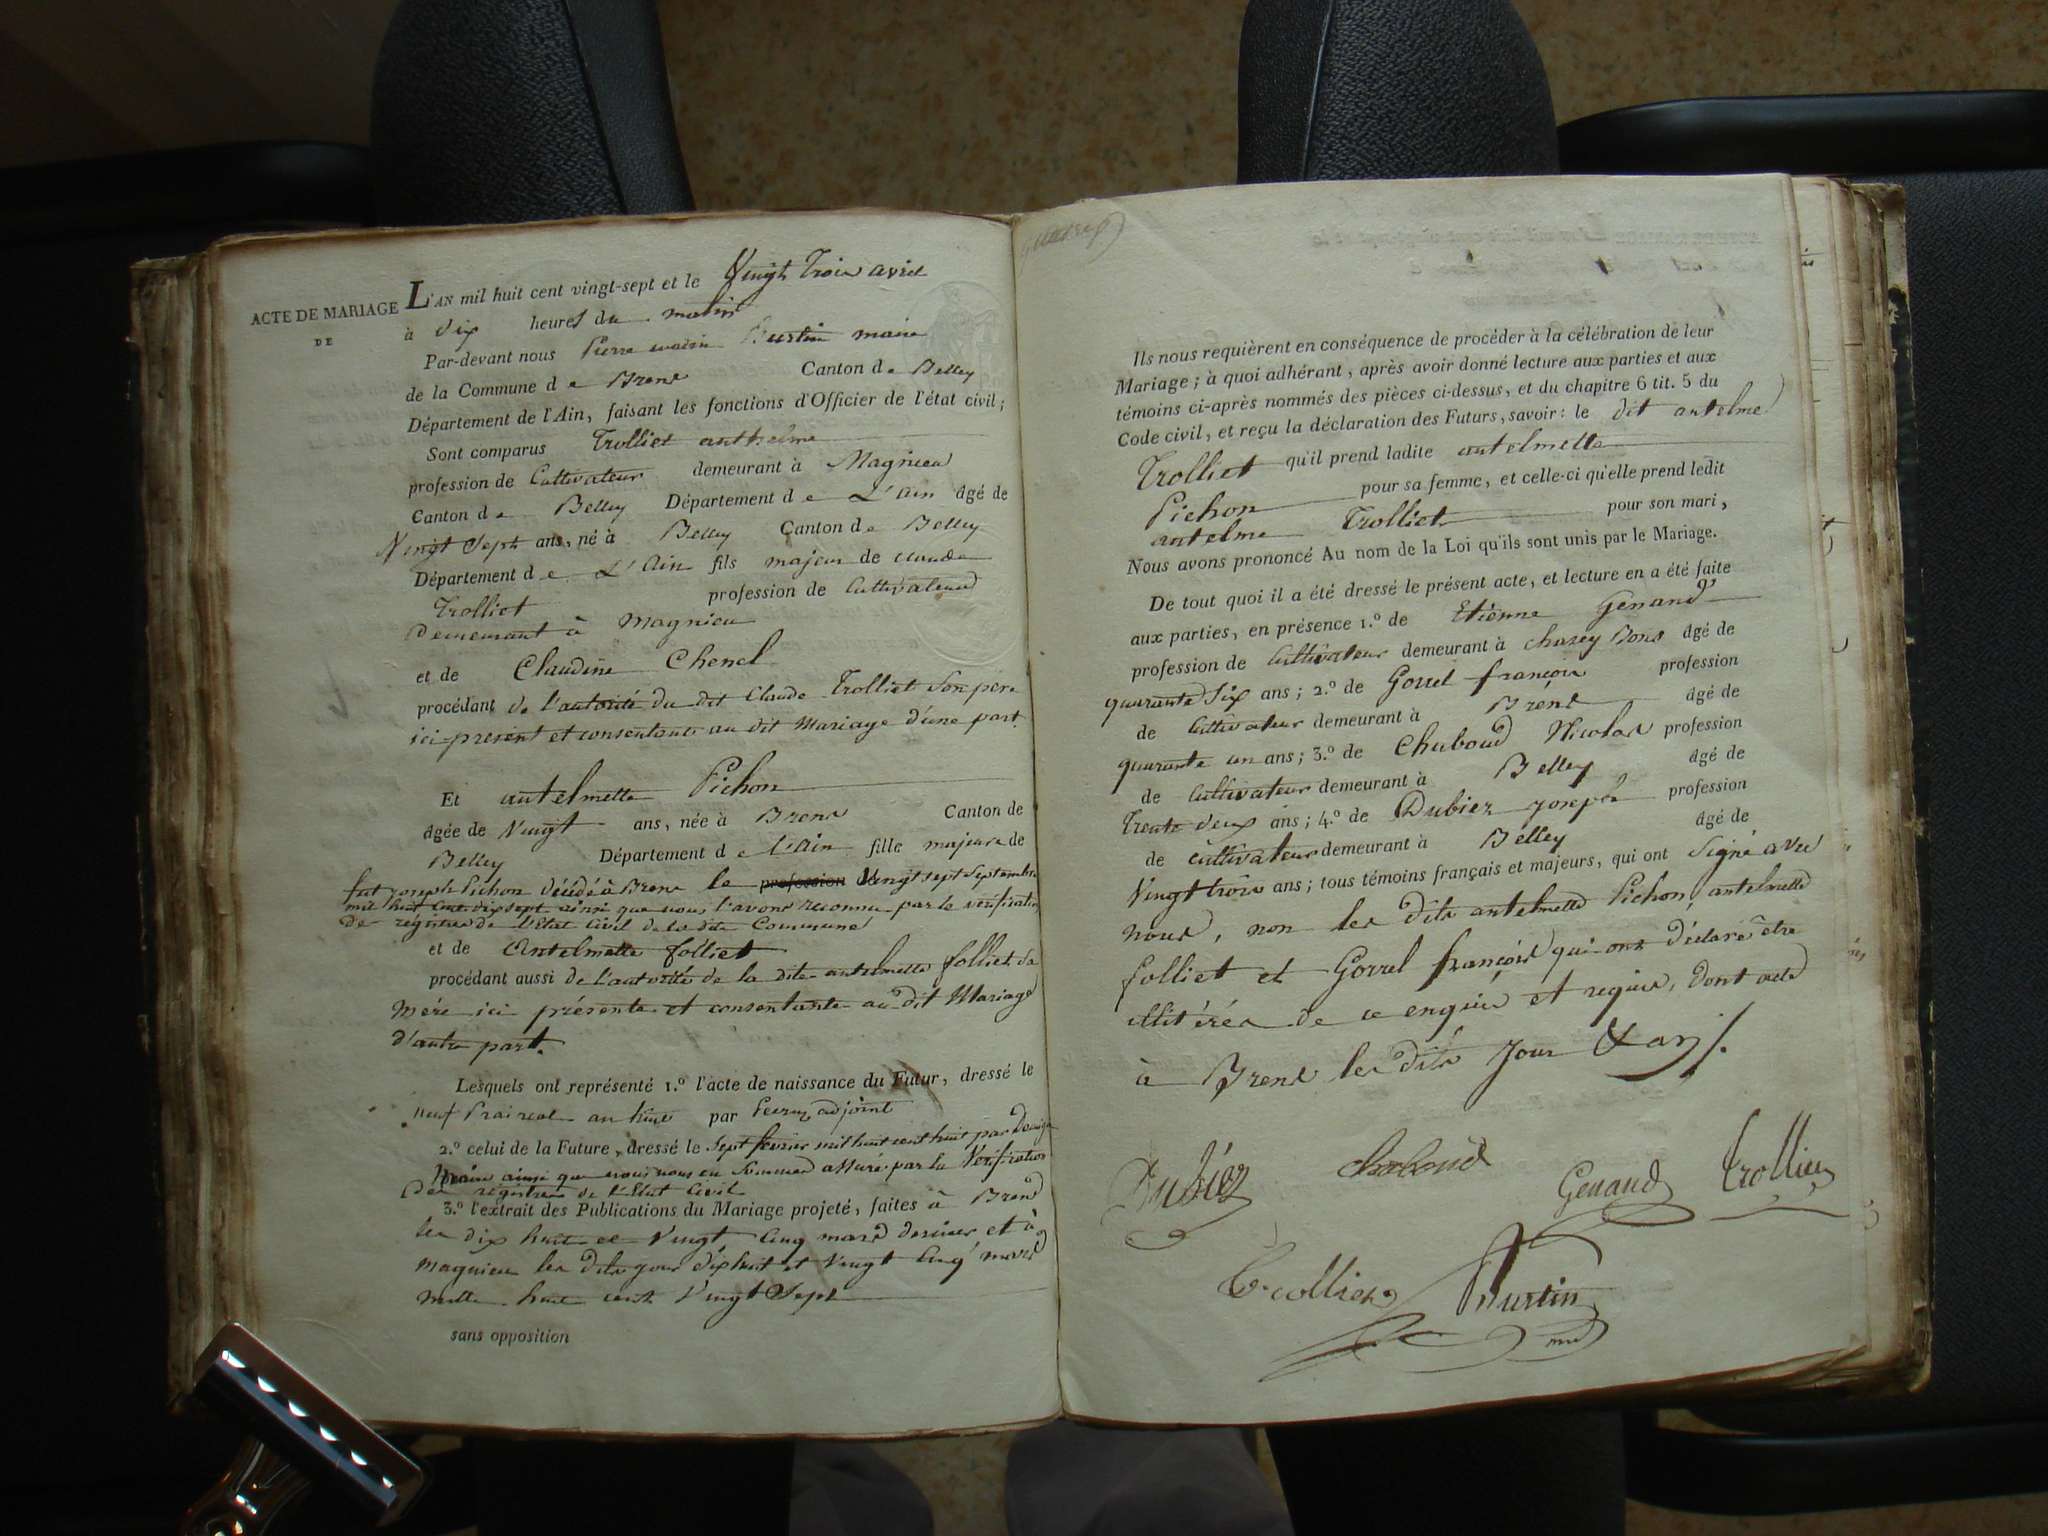 ACTE DE MARIAGE
DE
L'AN mil huit cent vingt-sept et le Vingt Trois avril
à dix heures du matin
Par-devant nous Pierre Burtin maire
de la Commune de Brens Canton de Belley
Département de l'Ain, faisant les fonctions d'Officier de l'état civil;
Sont comparus Trolliet anthelme
profession de Cultivateur demeurant à Magnieu
Canton de Belley Département de L'ain âgé de
Vingt Sept ans, né à Belley Canton de Belley
Département de L'ain fils majeur de Claude
Trolliet profession de Cultivateur
Demeurant à Magnieu
et de Claudine Chenel
procédant de l'autorité du dit Claude Trolliet Son père
ici présent et consentant au dit Mariage d'une part.
Et antelmette Pichon
âgée de Vingt ans, née à Brens Canton de
Belley Département de l'ain fille majeure de
fut joseph Pichon décédé à Brens le profession Vingt sept Septembre
mil huit Cent dix sept ainsi que nous l'avons reconnu par la vérification
de registres de l'Etat Civil de la dite Commune
et de Antelmette folliet
procédant aussi de l'autorité de la dite antelmette folliet sa
mère ici présente et consentante au dit Mariage
d'autre part.
Lesquels ont représenté 1.º l'acte de naissance du Futur, dressé le
neuf Praireal an huit par adjoint
2.º celui de la Future, dressé le Sept fevrier mil huit cent huit par
maire ainsi que nous nous en Sommes assuré par la Verification
des registres de l'Etat Civil
3.º l'extrait des Publications du Mariage projeté, faites à Brens
les dix huit et Vingt Cinq mars dernier et à
magnieu les dits jour dixhuit et Vingt Cinq mars
mille huit cent Vingt Sept
sans opposition
Ils nous requièrent en conséquence de procéder à la célébration de leur
Mariage; à quoi adhérant, après avoir donné lecture aux parties et aux
témoins ci-après nommés des pièces ci-dessus, et du chapitre 6 tit. 5 du
Code civil, et reçu la déclaration des Futurs, savoir: le dit antelme
Trolliet qu'il prend ladite antelmette
Pichon pour sa femme, et celle-ci qu'elle prend ledit
antelme Trolliet pour son mari,
Nous avons prononcé Au nom de la Loi qu'ils sont unis par le Mariage.
De tout quoi il a été dressé le présent acte, et lecture en a été faite
aux parties, en présence 1.º de Etienne Genand
profession de Cultivateur demeurant à chazey Bons âgé de
quarante Six ans; 2.º de Gorrel françois profession
de Cultivateur demeurant à Brens âgé de
quarante un ans; 3.º de Chaboud Nicolas profession
de Cultivateur demeurant à Belley âgé de
Trente deux ans; 4.º de Dubiez joseph profession
de cultivateur demeurant à Belley âgé de
Vingt trois ans; tous témoins français et majeurs, qui ont Signé avec
nous, non les dits antelmette Pichon, antelmette
folliet et Gorrel françois qui ont déclaré être
illitérés de ce enquis et requis, Dont acte
à Brens les dits Jour & an
Dubiez chaboud Genand Trolliet
Trolliet Burtin